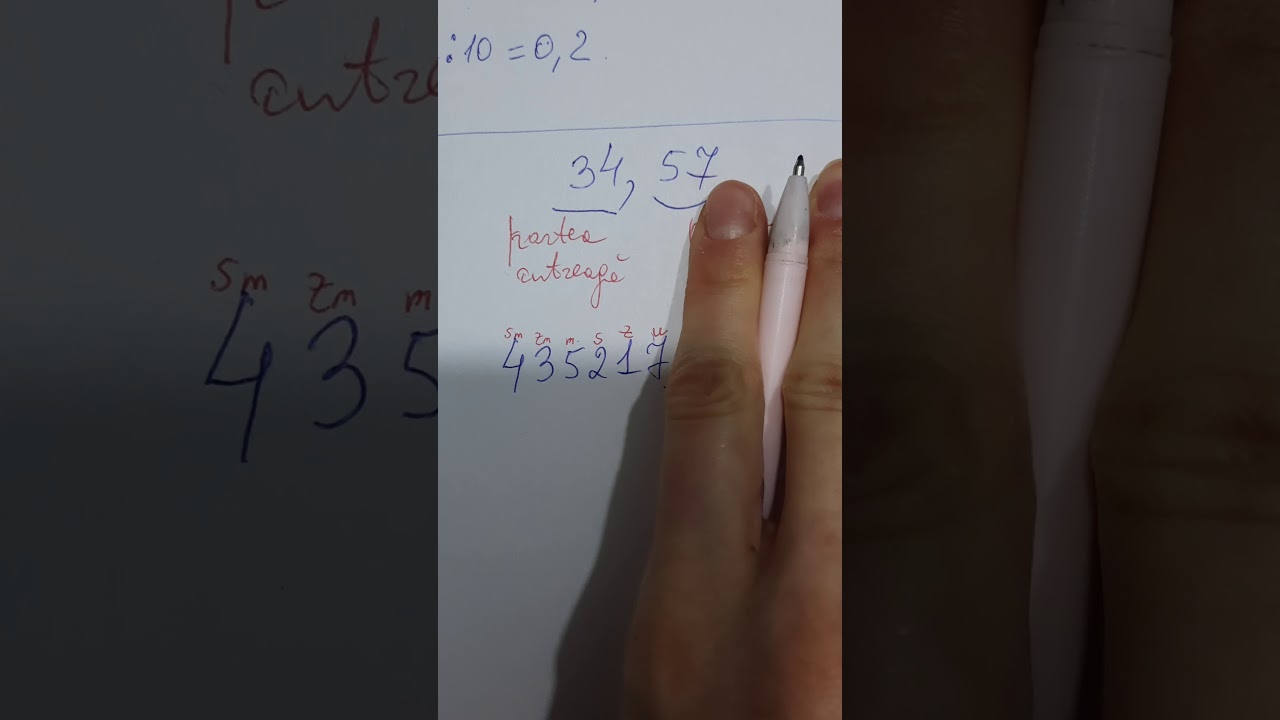 :10 = 0,2.
34, 57
partea
întreagă
sm zm m s z u
435217